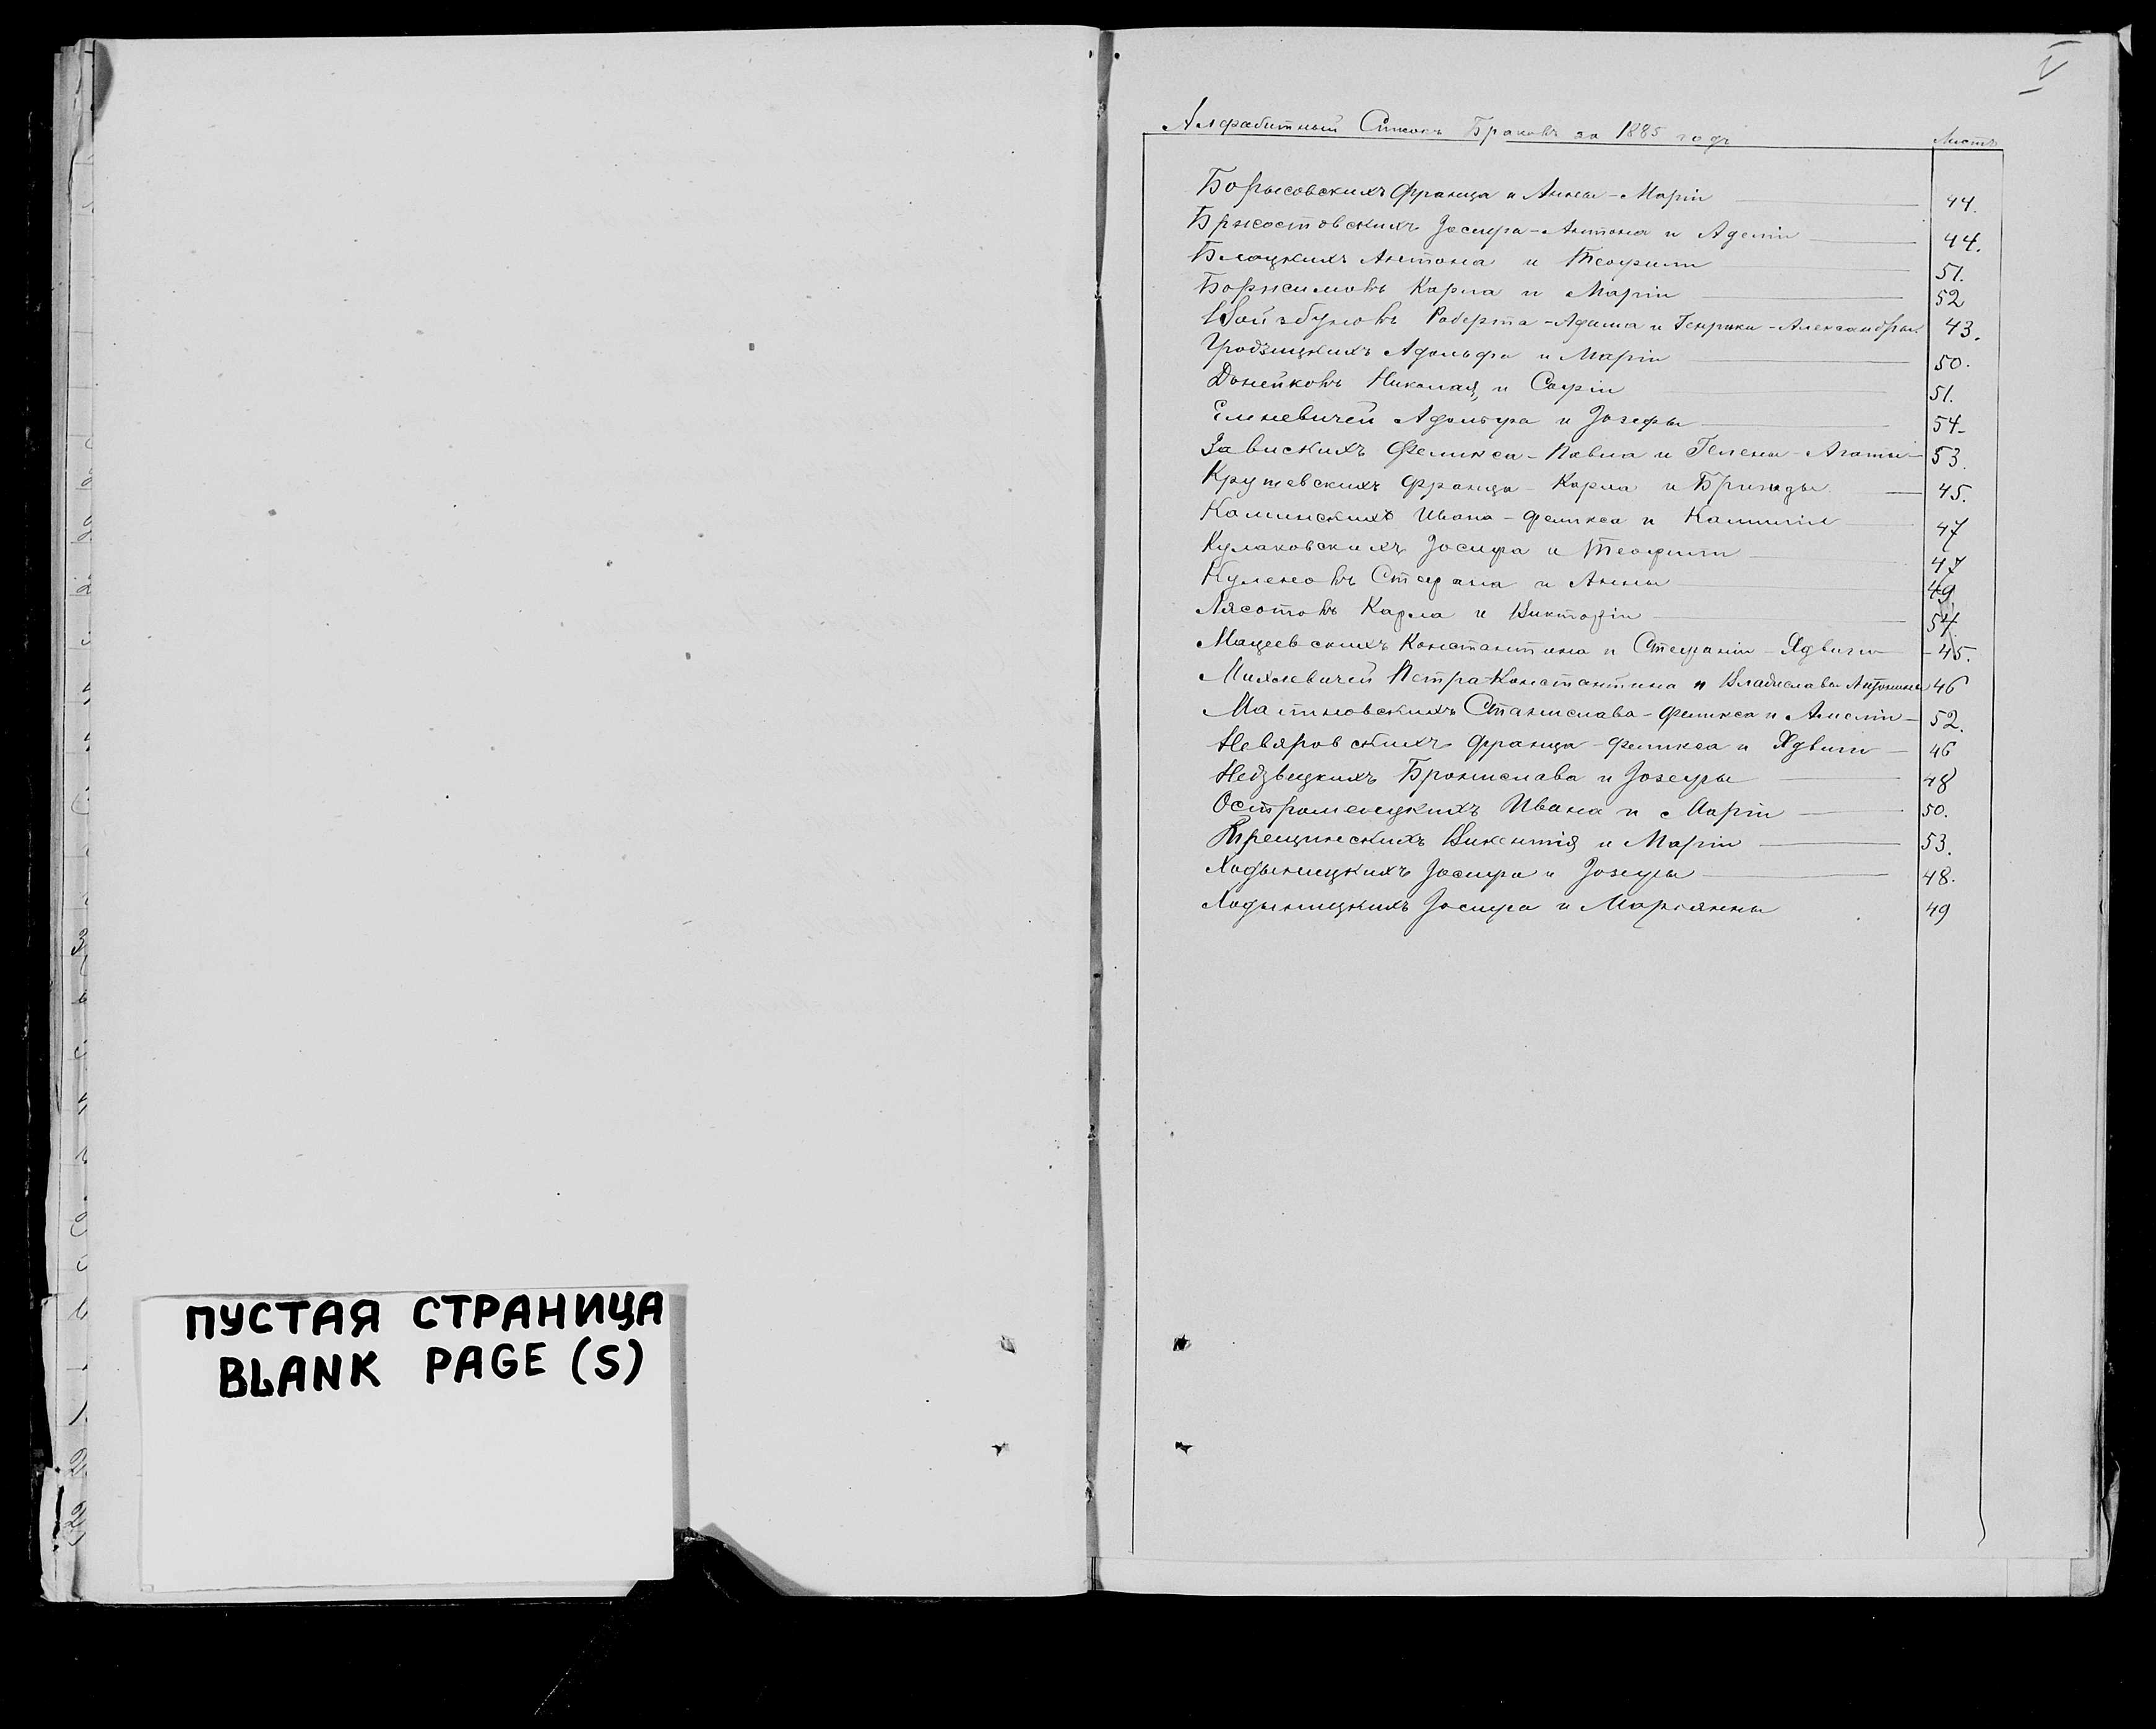 V
Алфабитный Списокъ Браковъ за 1885 годъ Листъ
Борысовскихъ Франца и Анны-Маріи 44.
Бржостовскихъ Іосифа-Антона и Аделіи 44.
Блоцкихъ Антона и Теофили 51.
Боржимовъ Карла и Маріи 52
Войзбуновъ Роберта-Адама и Генрики-Александры 43.
Гродзицкихъ Адольфа и Маріи 50.
Донейковъ Николая и Софіи 51.
Елневичей Адольфа и Іозефы 54
Завискихъ Феликса-Павла и Гелены-Агаты 53.
Крушевскихъ Франца-Карла и Бригиды 45.
Каминскихъ Ивана-Феликса и Камиліи 47
Кулаковскихъ Іосифа и Теофили 47
Куленовъ Стефана и Анны 49
Лясотовъ Карла и Викторіи 54.
Мацеевскихъ Константина и Стефаніи-Ядвиги 45.
Михневичей Петра-Константина и Владиславы Антонины 46
Малиновскихъ Станислава-Феликса и Амеліи 52.
Невяровскихъ Франца-Феликса и Ядвиги 46
Недзвецкихъ Бронислава и Іозефы 48
Остроменцкихъ Ивана и Маріи 50.
Викентія и Маріи 53.
Ходыницкихъ Іосифа и Іозефы 48.
Ходыницкихъ Іосифа и Маріянны 49
ПУСТАЯ СТРАНИЦА
BLANK PAGE (S)